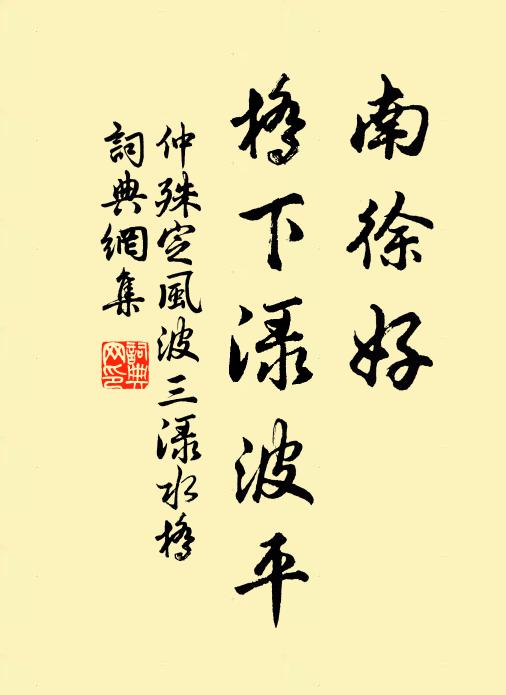 南徐好
橋下渌波平
仲殊定風波三渌水橋
詞典網集
詞典網印